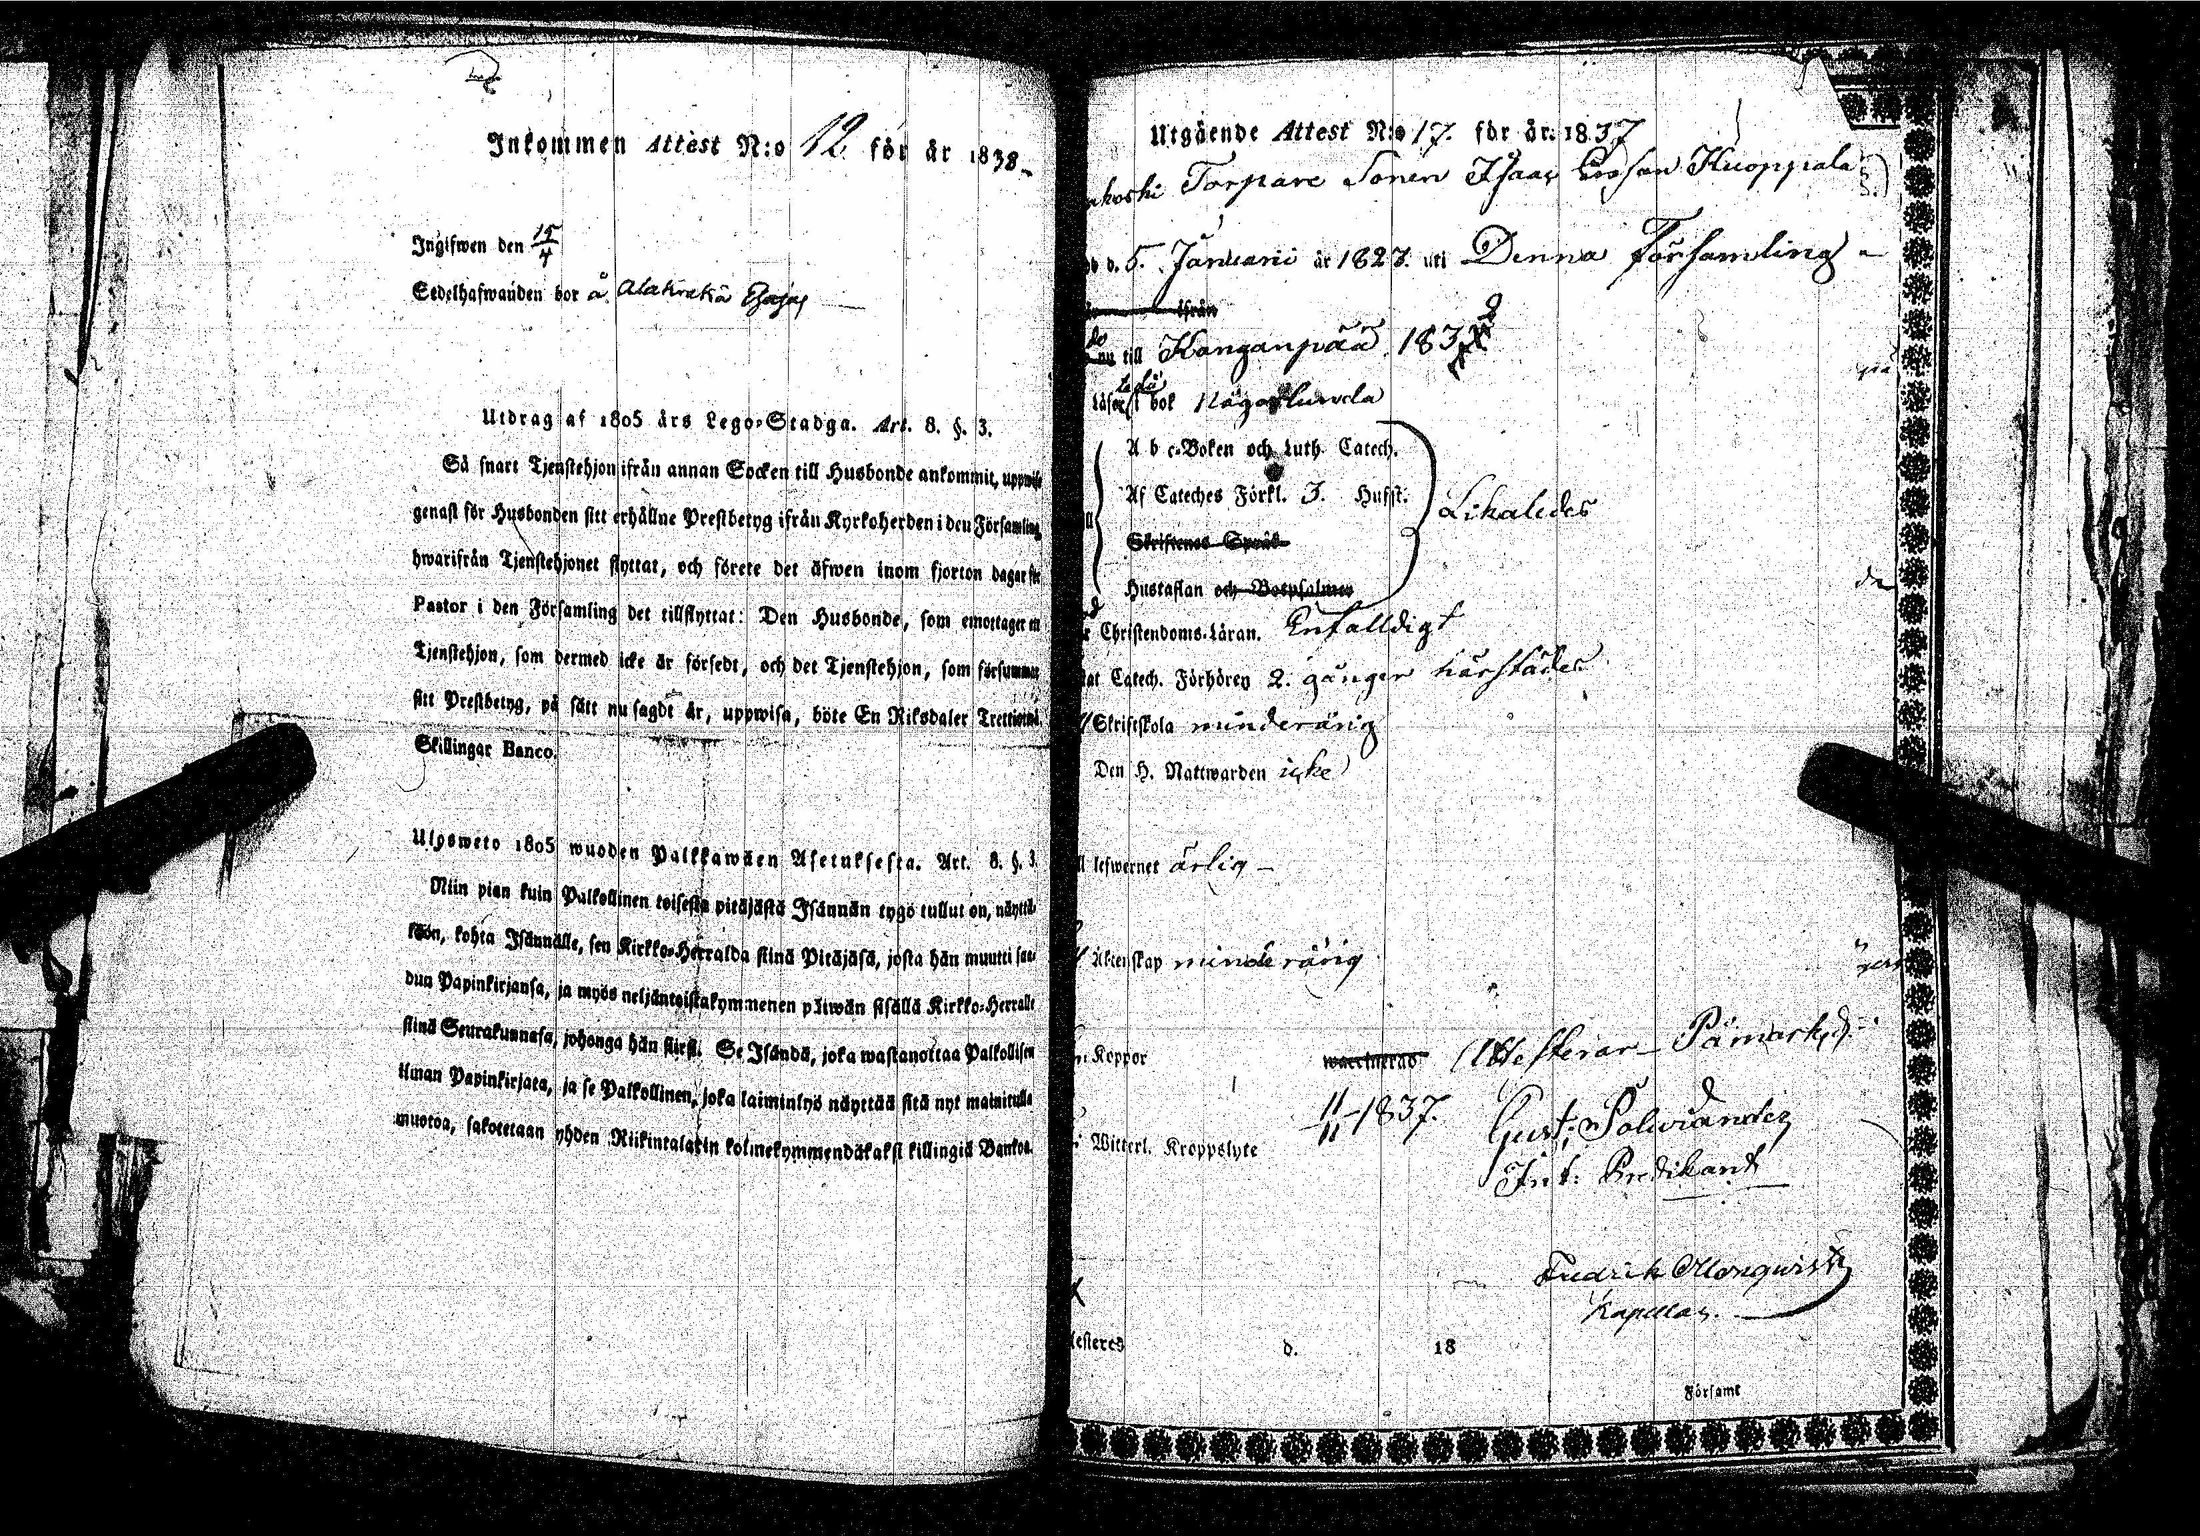 Inkommen Attest N:o 12 för år 1838
Ingifwen den 15/4
Sedelhafwanden bor å
Utdrag af 1805 års Lego-Stadga. Art. 8. §. 3.
Så snart Tjenstehjon ifrån annan Socken till Husbonde ankommit, uppwise
genast för Husbonden sitt erhållne Prestbetyg ifrån Kyrkoherden i den Församling
hwarifrån Tjenstehjonet flyttat, och förete det äfwen inom fjorton dagar för
Pastor i den Församling det tillflyttat: Den Husbonde, som emottager en
Tjenstehjon, som dermed icke är försedt, och det Tjenstehjon, som försummar
sitt Prestbetyg, på sätt nu sagdt är, uppwisa, böte En Riksdaler Trettiotwå
Skillingar Banco.
Ulosweto 1805 wuoden Palkkawäen Asetuksesta. Art. 8. §. 3.
Niin pian kuin Palkollinen toisesta pitäjästä Isännän tygö tullut on, näyttä-
köön, kohta Isännälle, sen Kirkko-Herralda siinä Pitäjäsä, josta hän muutti saa-
dun Papinkirjansa, ja myös neljäntoistakymmenen päiwän sisällä Kirkko-Herralle
siinä Seurakunnasa, johonga hän siirsi. Se Isändä, joka wastanottaa Palkollisen
ilman Papinkirjata, ja se Palkollinen, joka laiminlyö näyttää sitä nyt mainitulla
muotoa, sakotetaan yhden Riikintalarin kolmekymmendäkaksi killingiä Bankoa.
Utgående Attest N:o 17. för år 1837
Torpare Sonen Isaac Kuoppala
d. 5. Januarii år 1823. uti Denna Församling
ifrån
nu till Kanganpää 183
Läser bok Någorlunda
A b c-Boken och Luth. Catech.
Af Cateches Förkl. 3. Hufst. Likaledes
Skriftenes Språk
Hustaflan och Botpsalmer
Christendoms-Läran. Enfalldigt
Catech. Förhören 2. gånger härstädes
Skriftskola minderårig
Den H. Nattwarden icke
lefwernet ärlig
Äktenskap minderårig
Koppor waccinerad Attesterar Påmark, d.
11/11 1837. Gust:
Witterl. Kroppslyte
Int: Predikant
Fredrik
Kapellan.
d. 18
Församl